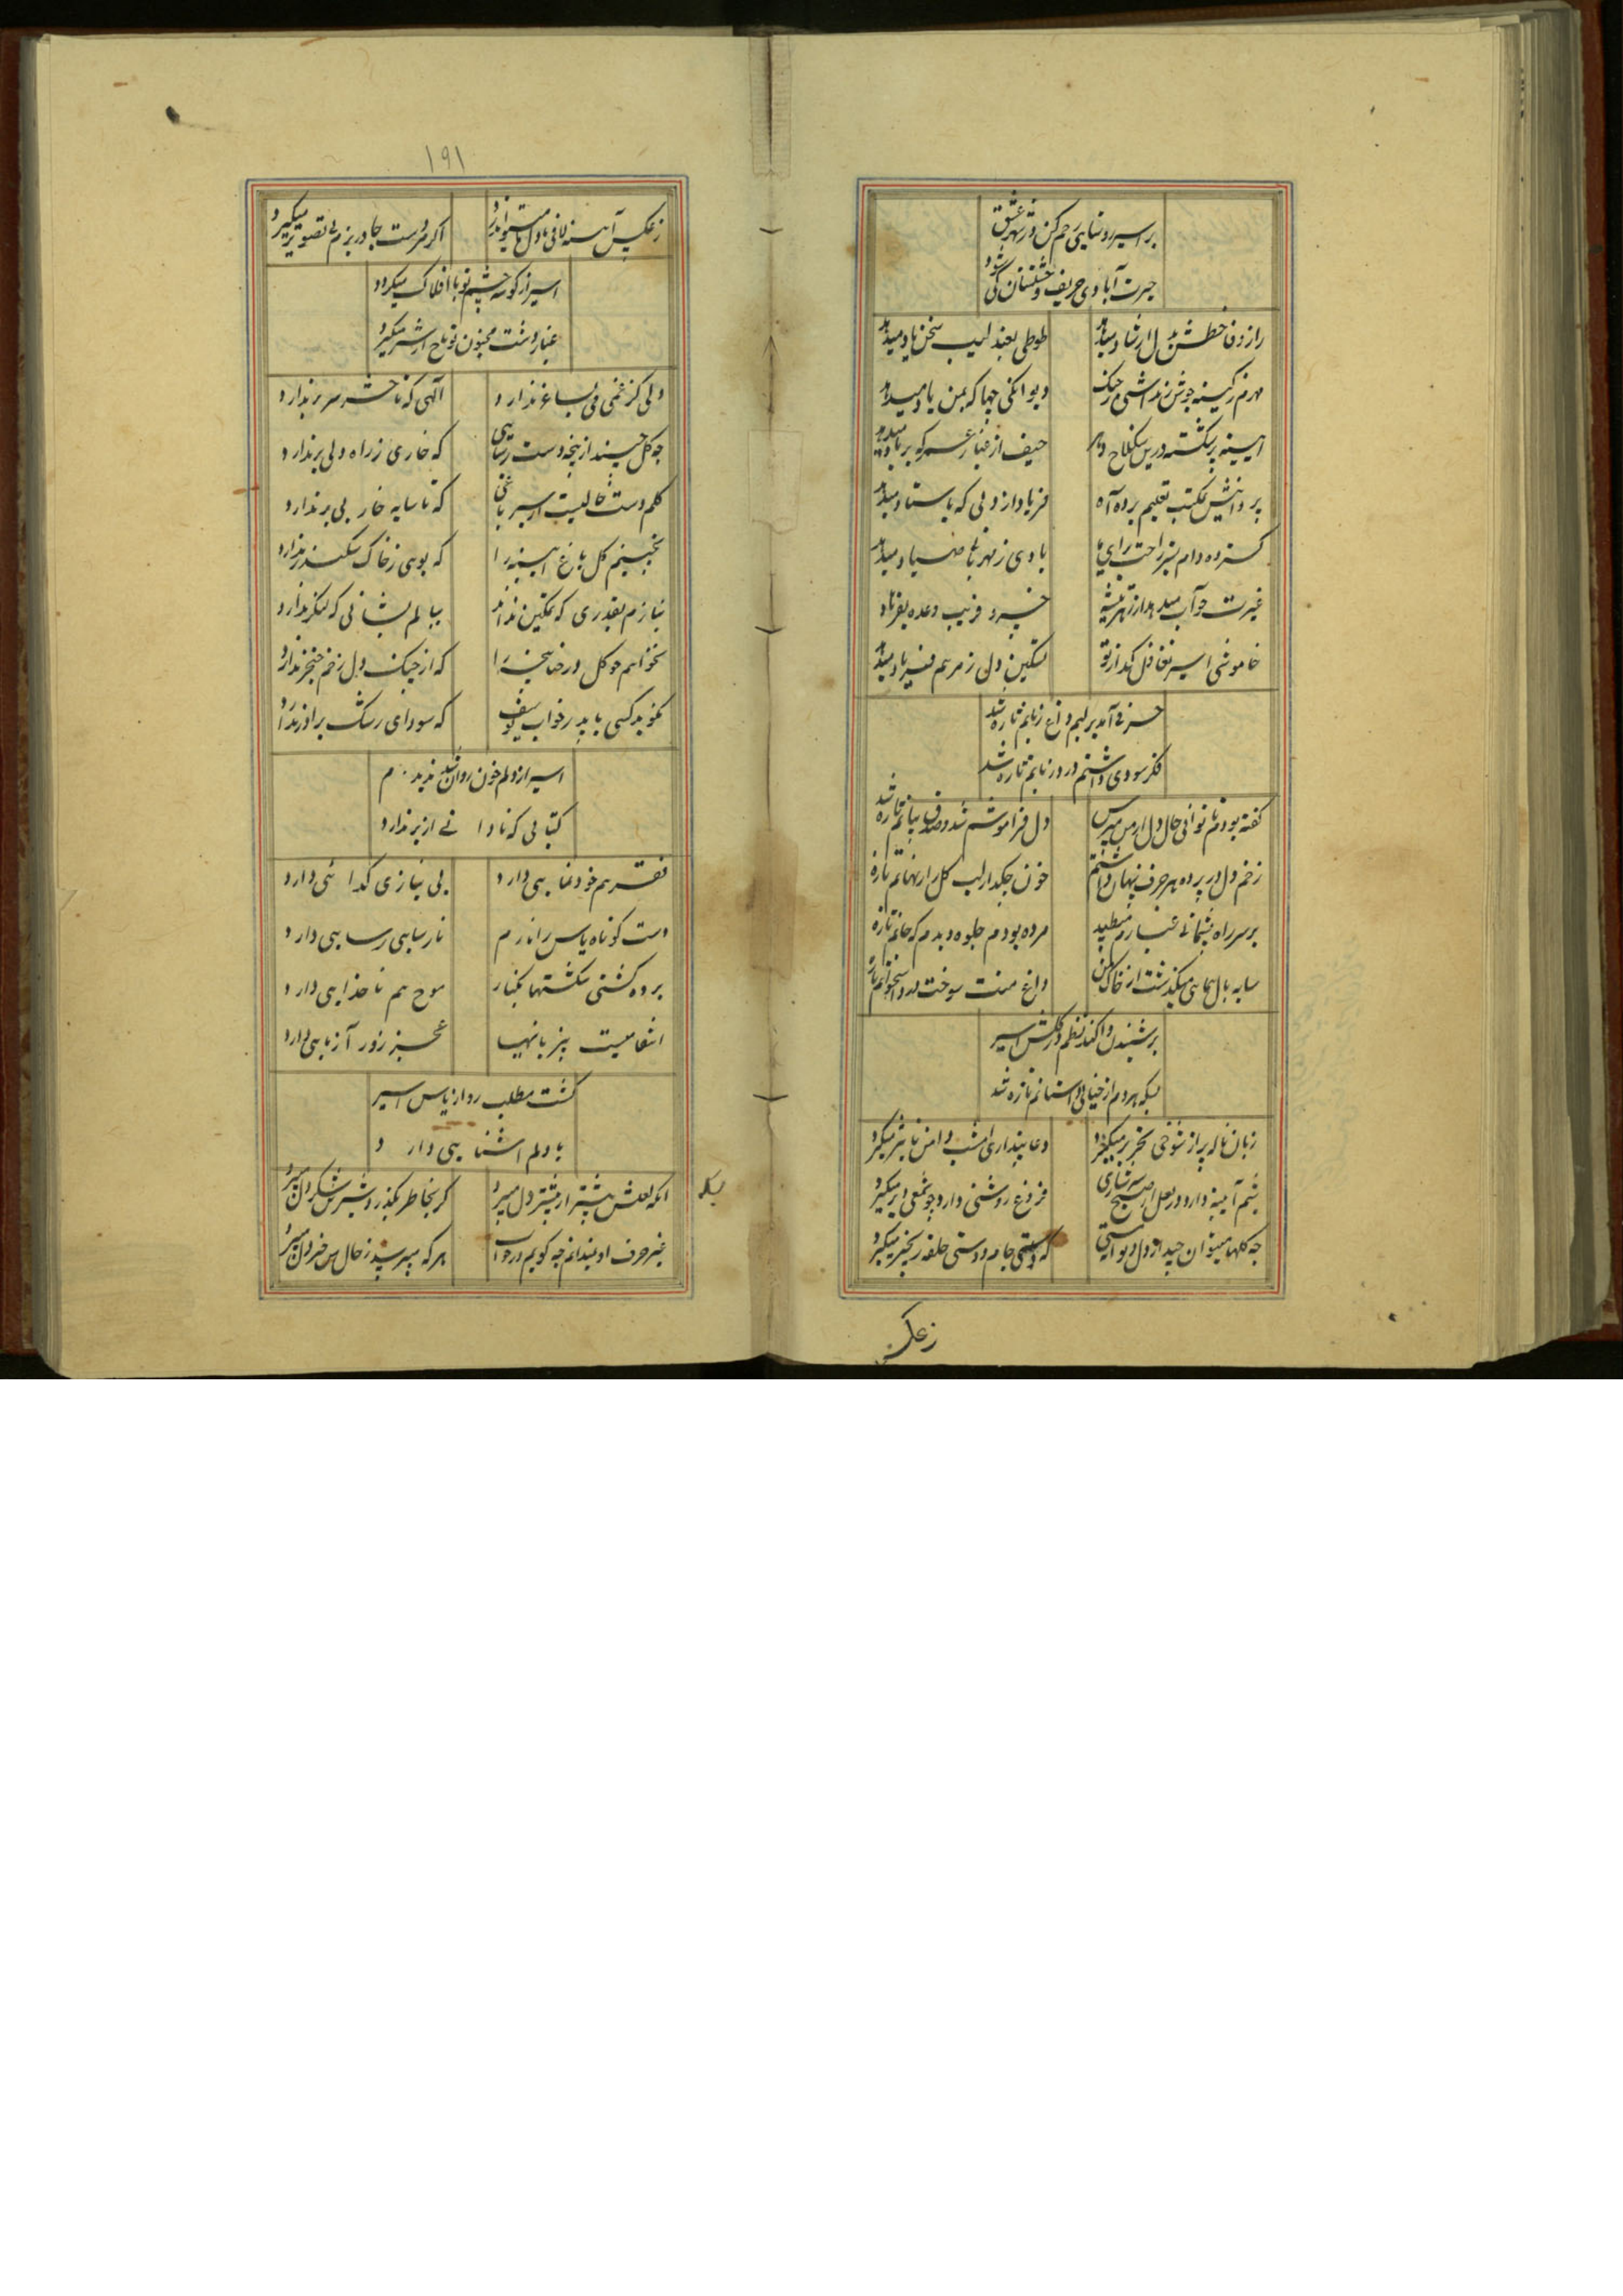 بر اسیر رونمایی رحم کن در شهر عشق
حیرت آبادی حریف وحشتستان کی شود
راز وفا خطش بدل ارشاد میدهد
طوطی بعندلیب سخن یاد میدهد
دیوانگی چها که بمن یاد میدهد
حیف از غبار عمر که بر باد میدهد
پروانش بمکتب تعلیم برده آه
فریاد از دلی که باستاد میدهد
گسترده دام
یادی ز مهر با صیاد میدهد
غیرت چو آب میدهد از زهر تیشه
خسرو فریب وعده بفرهاد
خاموشی اسیر تغافل کند از تو
تسکین دلی ز مرهم فریاد میدهد
حرفی آمد بر لبم داغ زبانم تازه شد
فکر سودی داشتم درد زیانم تازه شد
گفته بودم ناتوانی حال دل از من مپرس
دل فراموشم شد و صدق بیانم تازه شد
زخم دل در پرده هر حرف پنهان داشتم
خون چکید از لب گل راز نهانم تازه
بر سر راه پشیمانی غبارم میطپید
مرده بودم جلوه دیدم که جانم تازه
سایه بال همایی میگذشت از خاک من
داغ منت سوخت درد استخوانم تازه
بر شنیدن واکند نظم در گلشن اسیر
بسکه هر دم از خیالی داستانم تازه شد
زبان ناله پر از شوخی تحریر میگیرد
دعا پنداری امشب دامن تاثیر میگیرد
شبم آیینه دارد در بغل از صبح سرشاری
فروغ روشنی دارد چو شمعی دیر میگیرد
چه گلها میتوان چید از دل دیوانه مستی
که دستی جام و دستی حلقه زنجیر میگیرد
زعکس
١٩١
زعکس آینه لافی با دل ما میتواند زد
اگر مردست جا در بزم بی تصویر میگیرد
اسیر از گوشه چشم تو با افلاک میگردد
غبار دشت مجنون تو باج از شیر میگیرد
دلی کز غمی می بساغر ندارد
الهی که تا حشر سر بر ندارد
چو گل چیند از پنجه دست رسایی
که خاری ز راه دلی بر ندارد
گلم دست خالیست از سیر باغی
که تا سایه خار بی پر ندارد
نچینم گل باغ آیینه را
که بویی ز خاک سکندر ندارد
بنازم بقدری که تمکین نداند
ببالم بشانی که لنگر ندارد
نخواهم چو گل در حنا پنجه را
که از چنگ دل زخم خنجر ندارد
نگوید کسی با پدر خواب یوسف
که سودای رشک برادر ندارد
اسیر از دلم خون روان شد ندیدم
کتابی که نادانی از بر ندارد
فقر هم خودنمایی دارد
بی نیازی گدائی دارد
دست کوتاه یاس را نازم
نارسایی رسایی دارد
برده کشتی شکستها بکنار
موج هم ناخدایی دارد
انتقامیست بیزبانیها
عجز زور آزمایی دارد
گشت مطلب روا ز یاس اسیر
با دلم آشنایی دارد
بسکه
آنکه لعلش بیشتر از بیشتر دل میبرد
گر بخاطر بگذرد شیرین شکر دل میبرد
غیر حرف او ندانم چه گویم در جواب
هر که میپرسد ز حال من خبر دل میبرد